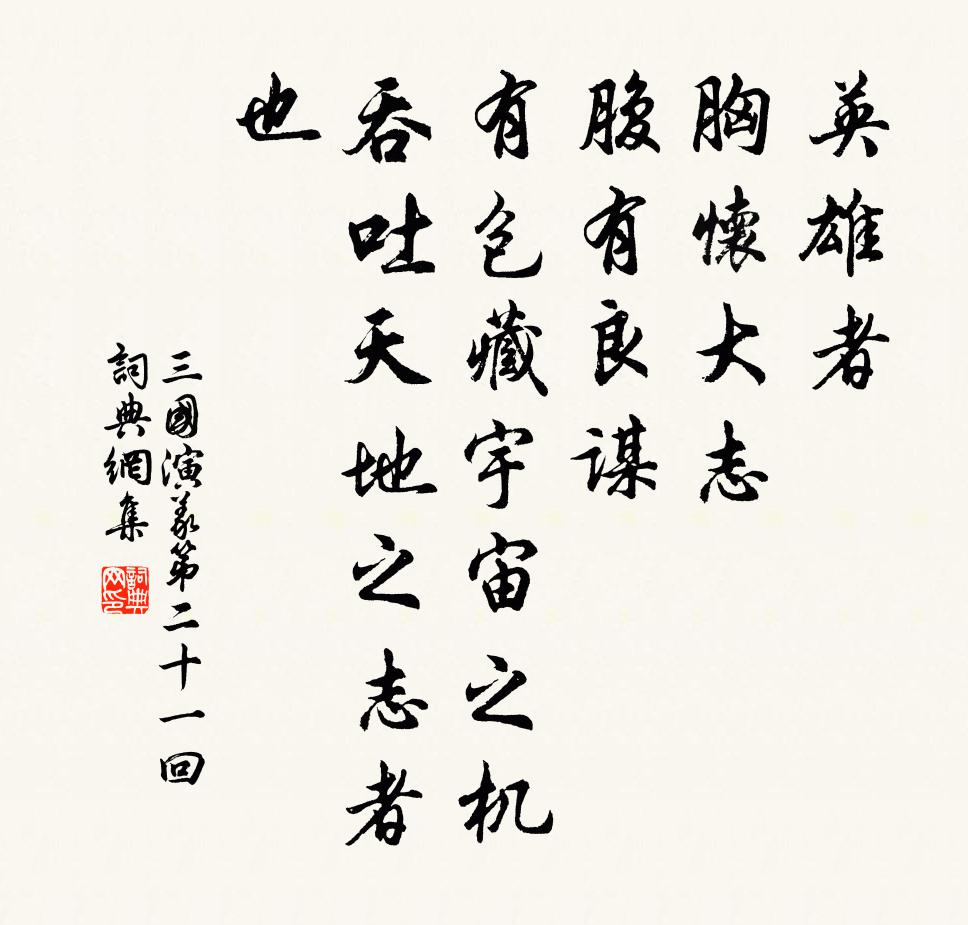 英雄者
胸懷大志
腹有良謀
有包藏宇宙之机
吞吐天地之志者
也
三國演義第二十一回
詞典網集
詞典
网印